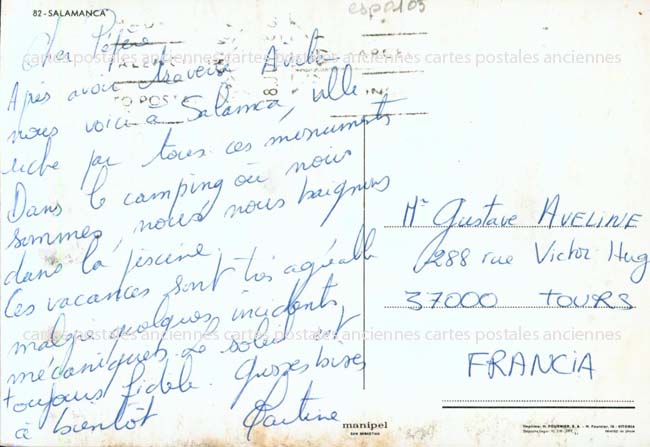 82 - SALAMANCA
Cher Pépère
Après avoir traversé Avila
nous voici à Salamca, ville
riche par tous ces monuments
Dans le camping où nous
sommes, nous nous baignons
dans la piscine.
Ces vacances sont très agréable
malgré quelques incidents
mécaniques. Le soleil est
toujours fidèle. Grosses bises
à bientôt Martine
Mr Gustave AVELINE
288 rue Victor Hug
37000 TOURS
FRANCIA
cartes postales anciennes cartes postales anciennes cartes postales anciennes
cartes postales anciennes cartes postales anciennes cartes postales anciennes
manipel
SAN SEBASTIAN
Imprime: H. FOURNIER, S. A. - H. Fournier, 19 - VITORIA